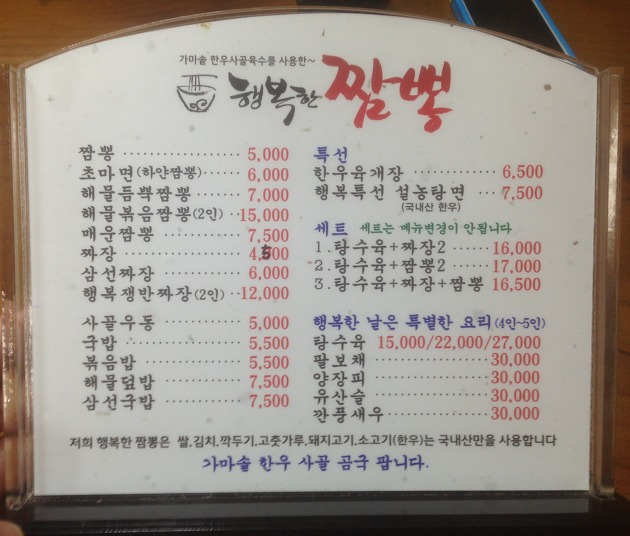 가마솥 한우사골육수를 사용한~
행복한 짬뽕
짬뽕 5,000
초마면(하얀짬뽕) 6,000
해물듬뿍짬뽕 7,000
해물볶음짬뽕(2인) 15,000
매운짬뽕 7,500
짜장 4,500
삼선짜장 6,000
행복쟁반짜장(2인) 12,000
사골우동 5,000
국밥 5,500
볶음밥 5,500
해물덮밥 7,500
삼선국밥 7,500
특선
한우육개장 6,500
행복특선 설농탕면 7,500
(국내산 한우)
세트 세트는 메뉴변경이 안됩니다
1.탕수육+짜장2 16,000
2.탕수육+짬뽕2 17,000
3.탕수육+짜장+짬뽕 16,500
행복한 날은 특별한 요리(4인~5인)
탕수육 15,000/22,000/27,000
팔보채 30,000
양장피 30,000
유산슬 30,000
깐풍새우 30,000
저희 행복한 짬뽕은 쌀.김치.깍두기.고춧가루.돼지고기.소고기(한우)는 국내산만을 사용합니다
가마솥 한우 사골 곰국 팝니다.